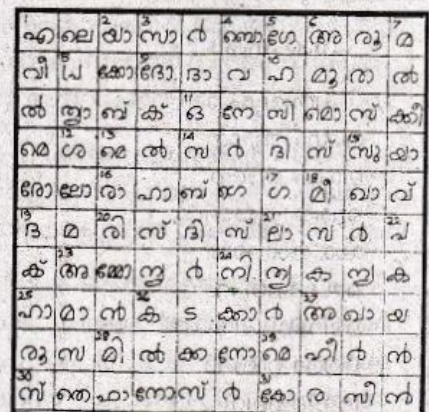 1 എ ലെ 2 യാ 3 സാ ർ 4 ബൊ 5 ഗേ 6 അ രൂ 7 മ
വീ 8 ധ്ര ക്കോ 9 ദോ ദാ വ 10 ഹ മൂ രാ ൽ
ൽ ത്രാ ബ് ക് 11 ദ നേ സി മൊ സ് ക്കീ
മെ 12 ശ 13 മെ ൽ 14 സ ർ ദി സ് 15 സു യാ
രോ ലോ 16 രാ ഹാ ബ് ഗെ 17 ഗ 18 മീ ഖാ വ്
19 ദ മ 20 രി സ് ദി സ് 21 ലാ സ ർ 22 പ
ക് 23 അ മ്മോ ന്യ ർ 24 നി ന്യ ക ന്യ ക
25 ഹാ മാ ൻ 26 ക ട ക്കാ ർ 27 അ ഖാ യ
രൂ സ 28 മി ൽ ക്ക നോ 29 മെ ഹീ ർ ൻ
30 സ് തെ ഫാ നോ സ് ർ 31 കോ ര സീ ൻ